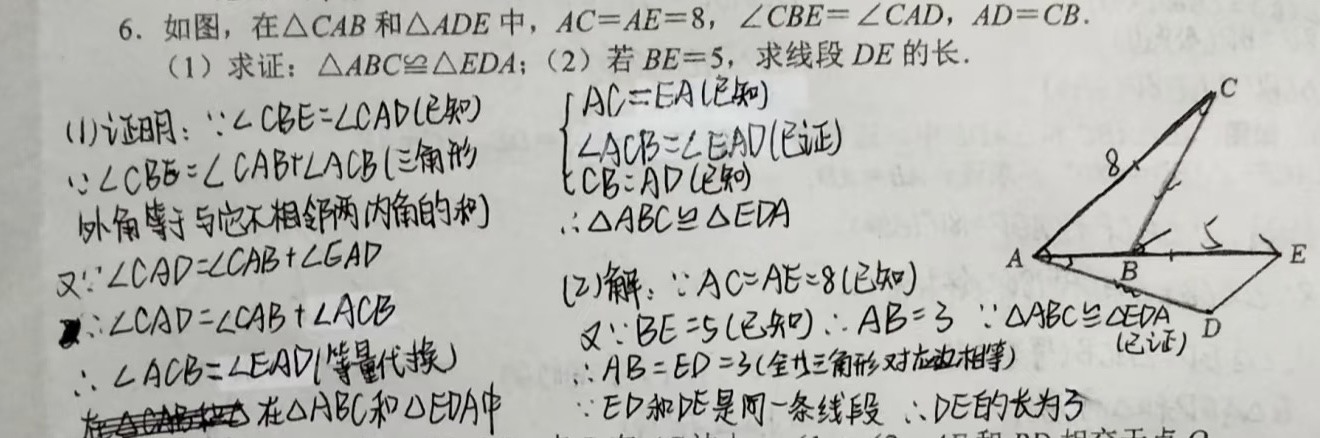 6. 如图，在△CAB和△ADE中，AC=AE=8，∠CBE=∠CAD，AD=CB.
（1）求证：△ABC≌△EDA；（2）若BE=5，求线段DE的长.
(1)证明：∵∠CBE=∠CAD(已知)
∵∠CBE=∠CAB+∠ACB(三角形
外角等于与它不相邻两内角的和)
又∵∠CAD=∠CAB+∠EAD
∴∠CAD=∠CAB+∠ACB
∴∠ACB=∠EAD(等量代换)
在△ABC和△EDA中
AC=EA(已知)
∠ACB=∠EAD(已证)
CB=AD(已知)
∴△ABC≌△EDA
(2)解：∵AC=AE=8(已知)
又∵BE=5(已知)∴AB=3 ∵△ABC≌△EDA
(已证)
∴AB=ED=3(全等三角形对应边相等)
∵ED和DE是同一条线段 ∴DE的长为3
C
8
A
B
5
E
D